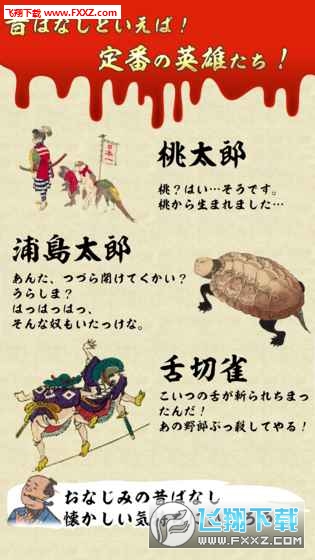 飞翔下载
www.FXXZ.com
昔ばなしといえば！
定番の英雄たち！
日本一
桃太郎
桃？はい…そうです。
桃から生まれました…
浦島太郎
あんた、つづら開けてくかい？
うらしま？
はっはっはっ、
そんな奴もいたっけな。
舌切雀
こいつの舌が斬られちまっ
たんだ！
あの野郎ぶっ殺してやる！
おなじみの昔ばなし
懐かしい気
飞翔下载
WWW.FXXZ.COM